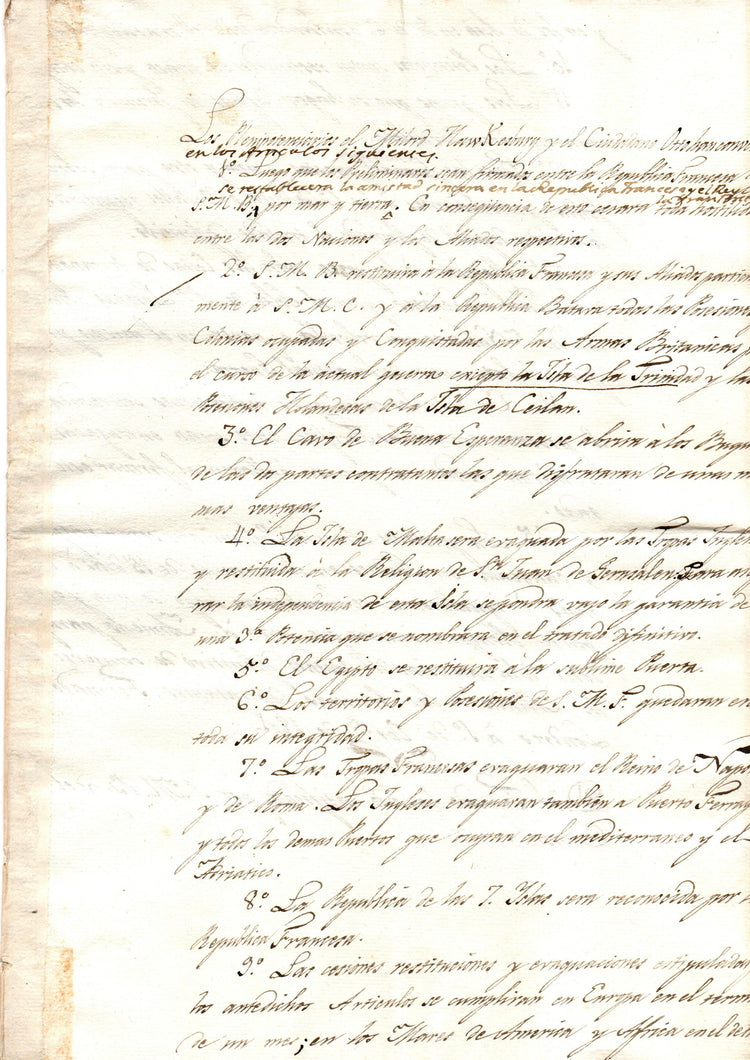 Los Plenipotenciarios el Milord Hawkesbury y el Ciudadano Otto han conv
en los Articulos siguientes.
1º Luego que los Preliminares sean firmados entre la Republica Francesa
se restablecera la amistad sincera en la Republica francesa y el Rey
S. M. B. por mar y tierra. En conseqüencia de eso cesara toda hostili
entre las dos Naciones y los Aliados respectivos.
2º S. M. B. restituira à la Republica Francesa y sus Aliados particu
mente à S. M. C. y à la Republica Batava todas las Posesiones
Colonias ocupadas y Conquistadas por las Armas Britanicas
el curso de la actual guerra excepto la Isla de la Trinidad y las
Posesiones Holandesas de la Isla de Ceilan.
3º El Cavo de Buena Esperanza se abrira à los Buqu
de las dos partes contratantes las que disfrutaran de unas m
mas ventajas.
4º La Isla de Malta sera evaquada por las Tropas Ingles
y restituida à la Religion de Sn. Juan de Gerusalen. Para
rar la independencia de esta Isla se pondra vajo la garantia de
una 3ª Potencia que se nombrara en el tratado difinitivo.
5º El Egipto se restituira à la sublime Puerta.
6º Los territorios y Posesiones de S. M. F. quedaran en
toda su integridad.
7º Las Tropas Francesas evaquaran el Reino de Napo
y de Roma. Los Ingleses evaquaran tambien a Puerto Ferra
y todos los demas Puertos que ocupan en el mediterraneo y el
Adriatico.
8º La Republica de las 7. Islas sera reconocida por
Republica Francesa.
9º Las cesiones restituciones y evaquaciones estipulados
los antedichos Articulos se cumpliran en Europa en el term
de un mes; en los Mares de America y Africa en el de